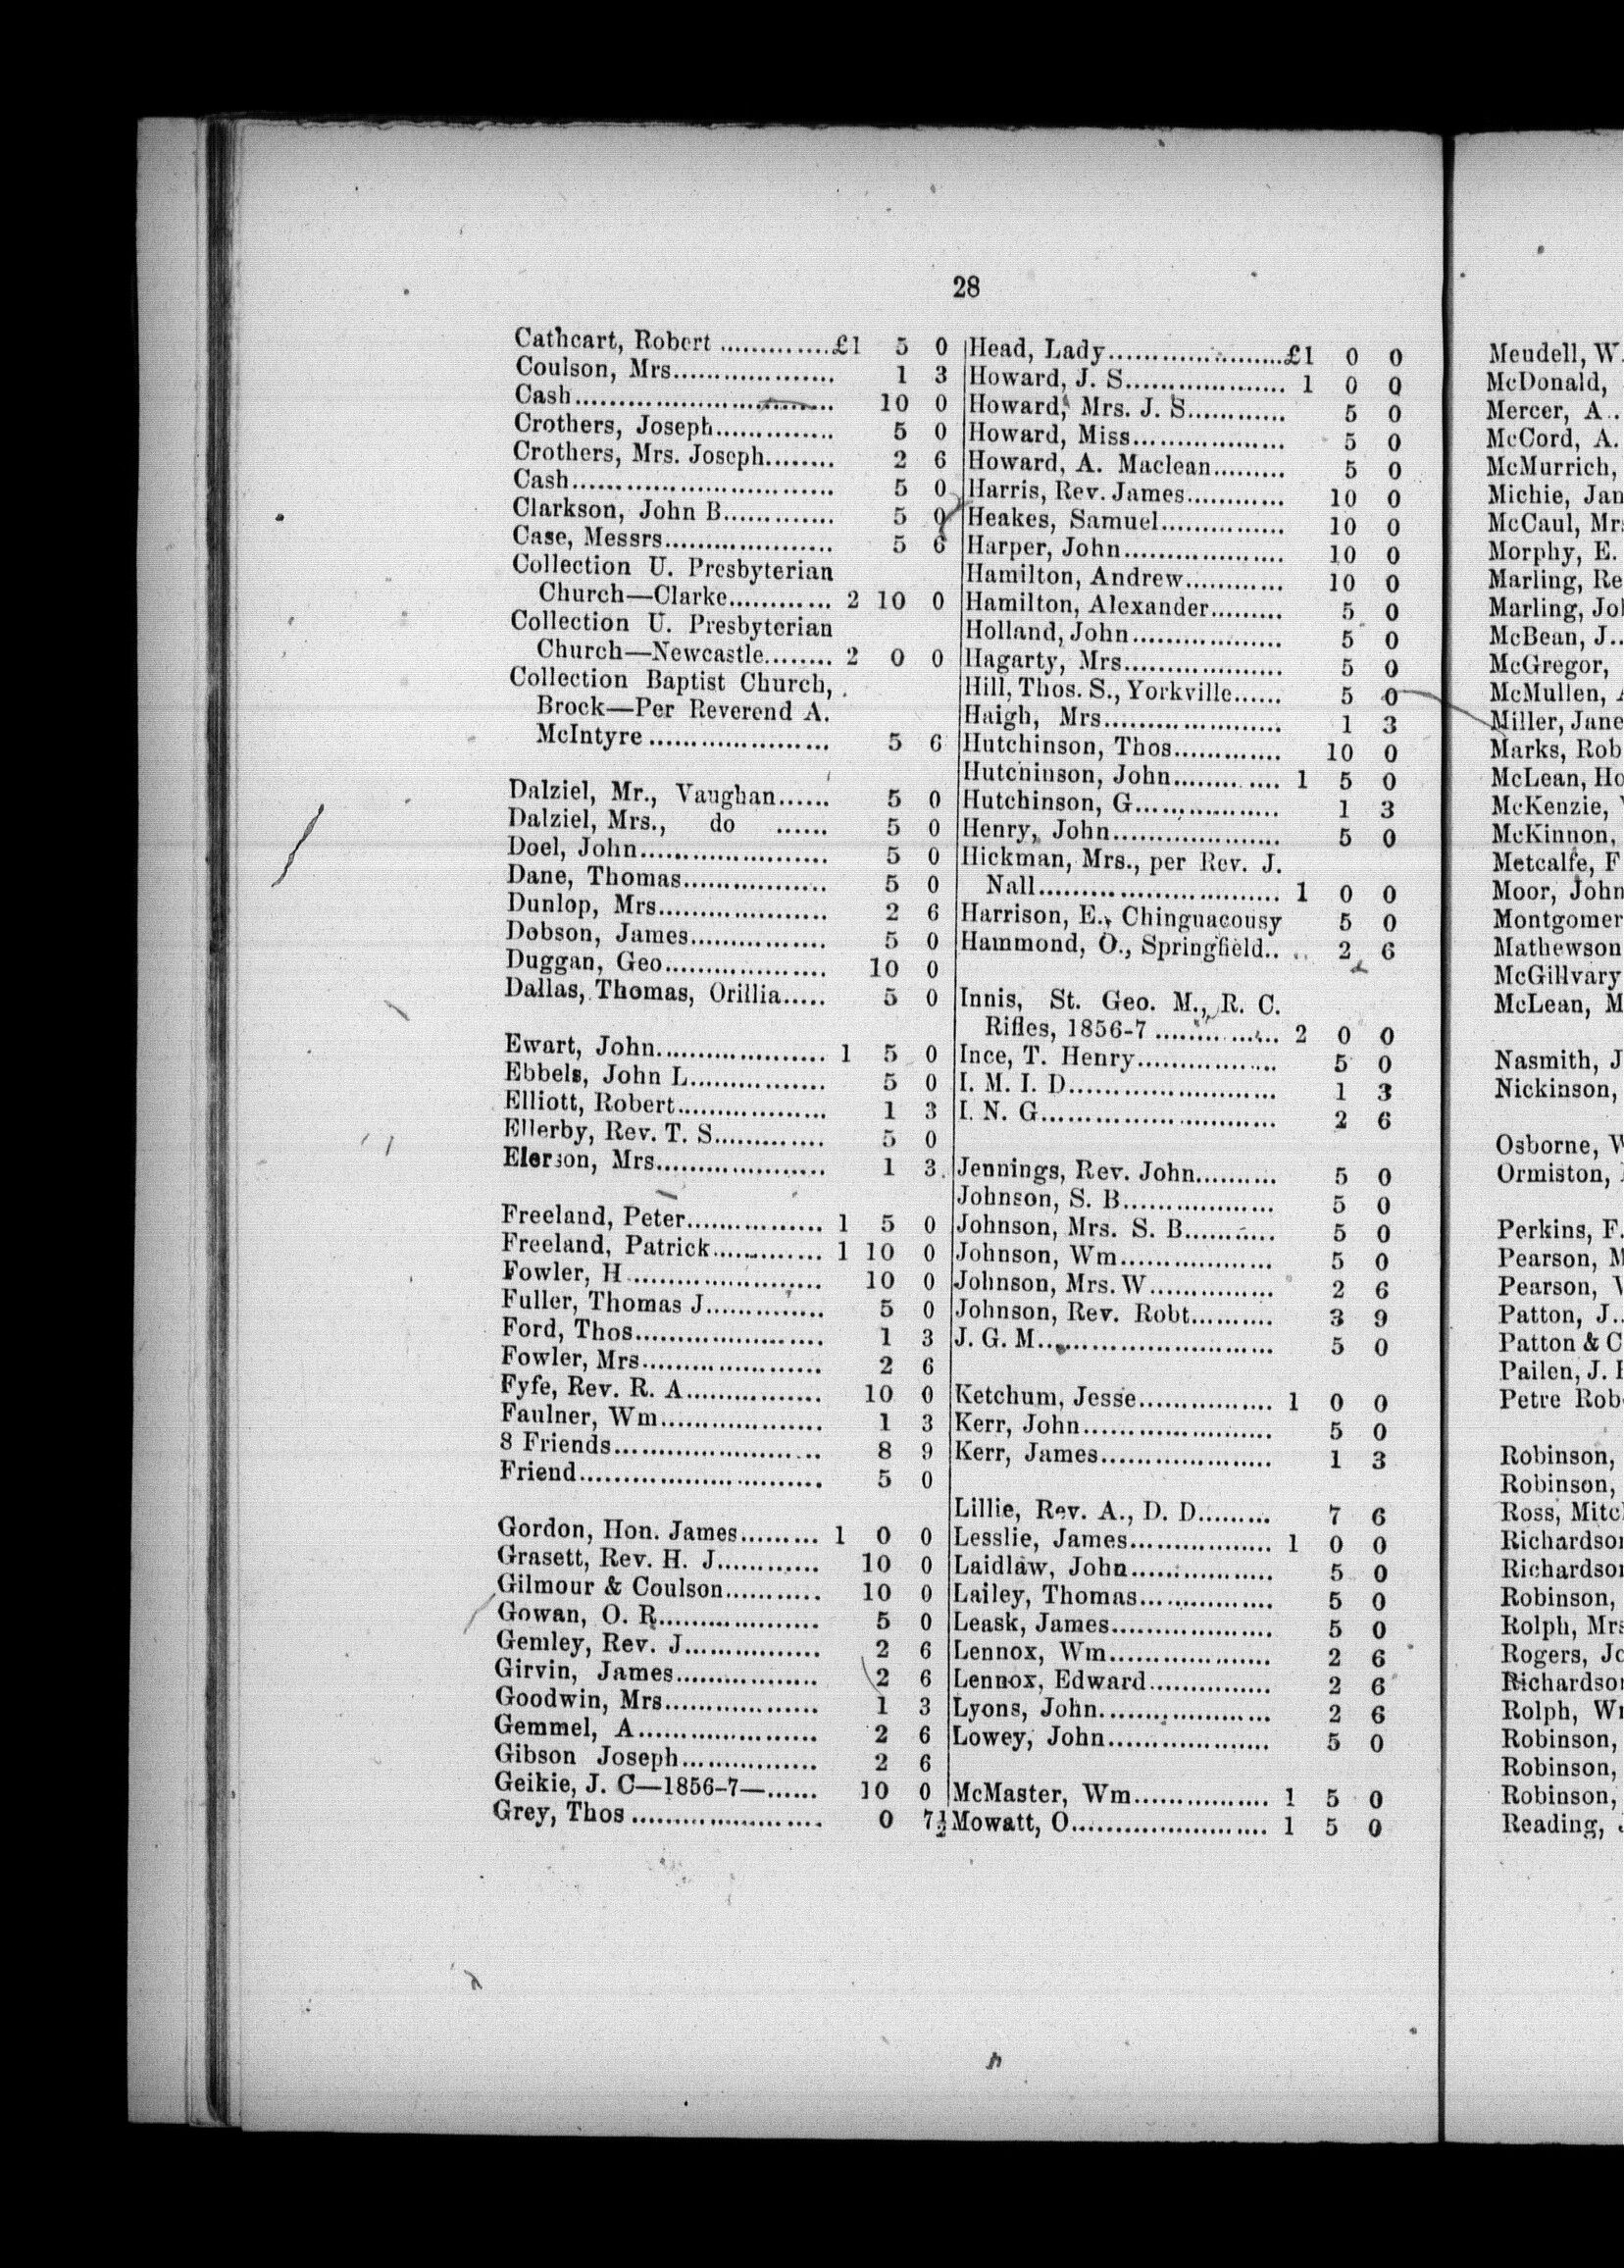 28
Cathcart, Robert ..............£1 5 0
Coulson, Mrs................... 1 3
Cash............................. 10 0
Crothers, Joseph.............. 5 0
Crothers, Mrs. Joseph........ 2 6
Cash............................. 5 0
Clarkson, John B............. 5 0
Case, Messrs................... 5 6
Collection U. Presbyterian
Church—Clarke............. 2 10 0
Collection U. Presbyterian
Church—Newcastle........ 2 0 0
Collection Baptist Church,
Brock—Per Reverend A.
McIntyre ..................... 5 6
Dalziel, Mr., Vaughan...... 5 0
Dalziel, Mrs., do ...... 5 0
Doel, John...................... 5 0
Dane, Thomas................. 5 0
Dunlop, Mrs................... 2 6
Dobson, James................ 5 0
Duggan, Geo................... 10 0
Dallas, Thomas, Orillia..... 5 0
Ewart, John.................... 1 5 0
Ebbels, John L................ 5 0
Elliott, Robert.................. 1 3
Ellerby, Rev. T. S............. 5 0
Elerson, Mrs................... 1 3
Freeland, Peter................ 1 5 0
Freeland, Patrick............. 1 10 0
Fowler, H ...................... 10 0
Fuller, Thomas J.............. 5 0
Ford, Thos...................... 1 3
Fowler, Mrs.................... 2 6
Fyfe, Rev. R. A................ 10 0
Faulner, Wm................... 1 3
8 Friends........................ 8 9
Friend........................... 5 0
Gordon, Hon. James......... 1 0 0
Grasett, Rev. H. J............ 10 0
Gilmour & Coulson........... 10 0
Gowan, O. R................... 5 0
Gemley, Rev. J................ 2 6
Girvin, James................. 2 6
Goodwin, Mrs.................. 1 3
Gemmel, A..................... 2 6
Gibson Joseph................ 2 6
Geikie, J. C—1856-7—...... 10 0
Grey, Thos ...................... 0 7½
Head, Lady.......................£1 0 0
Howard, J. S................... 1 0 0
Howard, Mrs. J. S............ 5 0
Howard, Miss.................. 5 0
Howard, A. Maclean......... 5 0
Harris, Rev. James............ 10 0
Heakes, Samuel............... 10 0
Harper, John................... 10 0
Hamilton, Andrew............ 10 0
Hamilton, Alexander......... 5 0
Holland, John.................. 5 0
Hagarty, Mrs................... 5 0
Hill, Thos. S., Yorkville...... 5 0
Haigh, Mrs..................... 1 3
Hutchinson, Thos............. 10 0
Hutchinson, John............. 1 5 0
Hutchinson, G................. 1 3
Henry, John.................... 5 0
Hickman, Mrs., per Rev. J.
Nall............................ 1 0 0
Harrison, E., Chinguacousy 5 0
Hammond, O., Springfield.. 2 6
Innis, St. Geo. M., R. C.
Rifles, 1856-7 ............... 2 0 0
Ince, T. Henry................. 5 0
I. M. I. D........................ 1 3
I. N. G........................... 2 6
Jennings, Rev. John.......... 5 0
Johnson, S. B.................. 5 0
Johnson, Mrs. S. B........... 5 0
Johnson, Wm.................. 5 0
Johnson, Mrs. W............... 2 6
Johnson, Rev. Robt.......... 3 9
J. G. M........................... 5 0
Ketchum, Jesse................ 1 0 0
Kerr, John...................... 5 0
Kerr, James.................... 1 3
Lillie, Rev. A., D. D......... 7 6
Lesslie, James................. 1 0 0
Laidlaw, John................. 5 0
Lailey, Thomas................ 5 0
Leask, James................... 5 0
Lennox, Wm................... 2 6
Lennox, Edward............... 2 6
Lyons, John.................... 2 6
Lowey, John.................... 5 0
McMaster, Wm................ 1 5 0
Mowatt, O....................... 1 5 0
Meudell, W.
McDonald,
Mercer, A..
McCord, A.
McMurrich,
Michie, Jan
McCaul, Mr
Morphy, E.
Marling, Re
Marling, Jo
McBean, J..
McGregor,
McMullen,
Miller, Jane
Marks, Rob
McLean, Ho
McKenzie,
McKinnon,
Metcalfe, F
Moor, John
Montgomer
Mathewson
McGillvary
McLean, M
Nasmith, J
Nickinson,
Osborne, W
Ormiston,
Perkins, F.
Pearson, M
Pearson,
Patton, J..
Patton & C
Pailen, J.
Petre Rob
Robinson,
Robinson,
Ross, Mitc
Richardson
Richardson
Robinson,
Rolph, Mrs
Rogers, Jo
Richardson
Rolph, W
Robinson,
Robinson,
Robinson,
Reading,